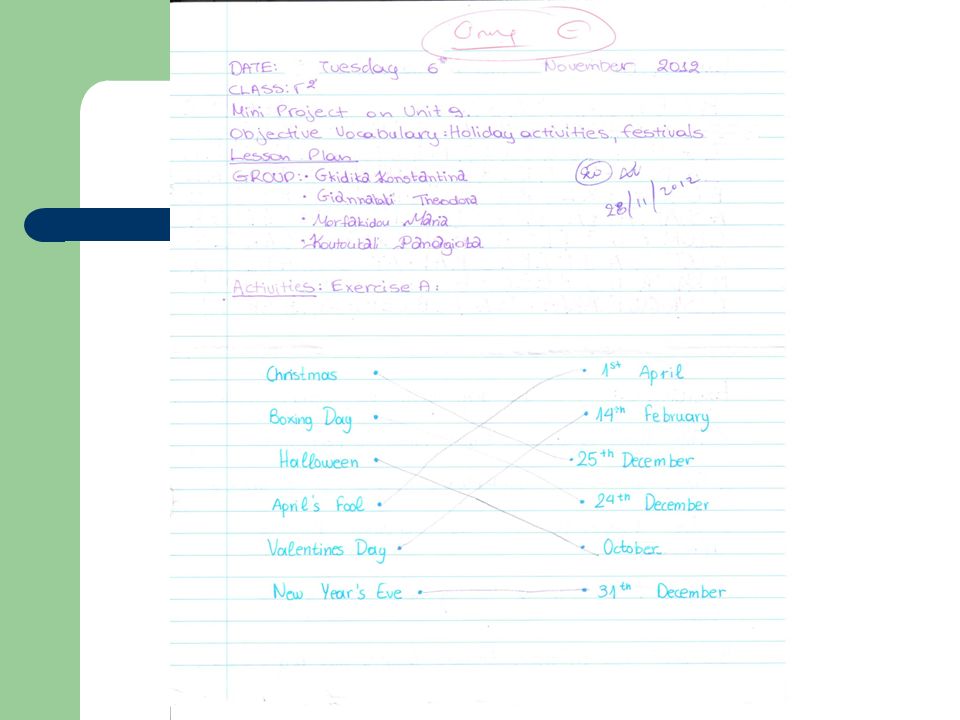 DATE: Tuesday 6th November 2012
CLASS: Γ2
Mini Project on Unit 9.
Objective Vocabulary: Holiday activities, festivals
Lesson Plan
GROUP: • Gkidika Konstantina
• Giannakali Theodora
• Morfakidou Maria
• Koutoukali Panagiota
28/11/2012
Activities: Exercise A:
Christmas • • 1st April
Boxing Day • • 14th February
Halloween • • 25th December
April's Fool • • 24th December
Valentines Day • • October
New Year's Eve • • 31th December